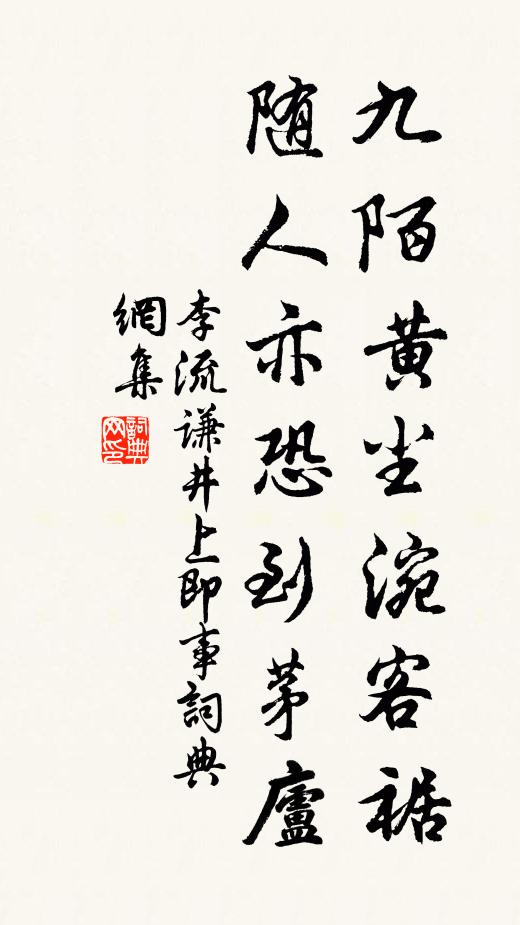 九陌黄尘涴客裾
随人亦恐到茅廬
李流谦井上即事詞典
網集
詞典網印